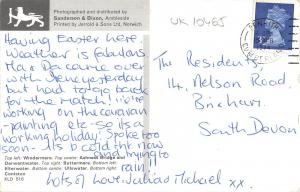 Photographed and distributed by
Sanderson & Dixon, Ambleside
Printed by Jarrold & Sons Ltd, Norwich
UK 10465
Having Easter here.
Weather is fabulous.
Ma & Da came over
with Jene yesterday
but had to go back
for the match! We're
working on the caravan
painting etc - so it's a
working holiday. Spoke too
soon - Its b cold now
and trying to
rain
Lots of love Julia & Michael xx.
The Residents
14, Nelson Road,
Brixham.
South Devon
Top left: Windermere. Top centre: Ashness Bridge and
Derwentwater. Top right: Buttermere. Bottom left:
Elterwater. Bottom centre: Ullswater. Bottom right:
Coniston
KLD 516